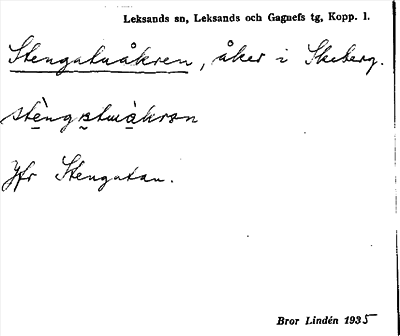 Leksands sn, Leksands och Gagnefs tg, Kopp. l.
Stengatuåkren, åker i Skeberg.
Jfr Stengatan.
Bror Lindén 1935